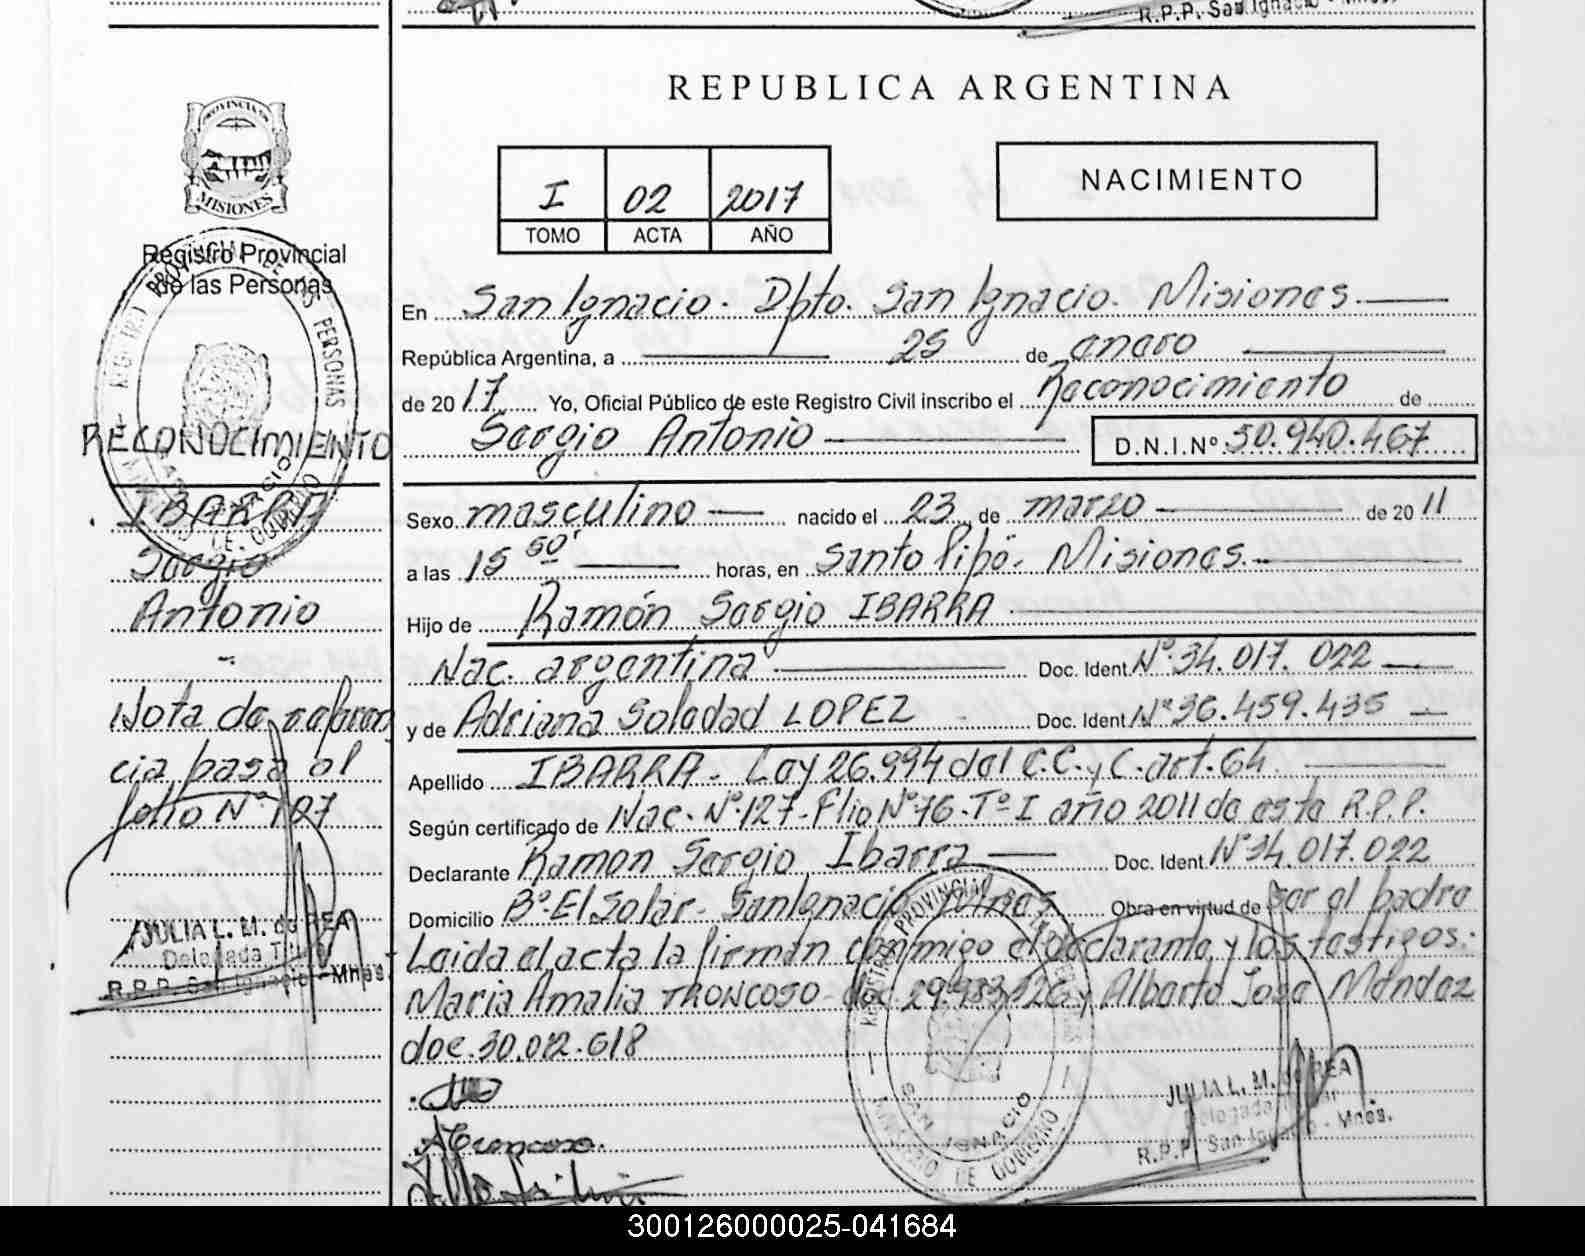 R.P.P. San Ignacio - Mnes.
REPUBLICA ARGENTINA
PROVINCIA DE
MISIONES
Registro Provincial
de las Personas
I 02 2017
TOMO ACTA AÑO
NACIMIENTO
En San Ignacio. Dpto. San Ignacio. Misiones.
República Argentina, a 25 de enero
de 2017 Yo, Oficial Público de este Registro Civil inscribo el Reconocimiento de
Sergio Antonio D.N.I.Nº 50.940.467
RECONOCIMIENTO
IBARRA
Sergio
Antonio
Nota de referen
cia pasa al
folio Nº 127
JULIA L. M. de REA
Delegada Titular
R.P.P. San Ignacio - Mnes.
Sexo masculino nacido el 23 de marzo de 2011
a las 15 50' horas, en Santo Pipó. Misiones.
Hijo de Ramón Sergio IBARRA
Nac. argentina Doc. Ident. Nº 34.017.022
y de Adriana Soledad LOPEZ Doc. Ident. Nº 36.459.435
Apellido IBARRA. Ley 26.994 del C.C. y C. art. 64
Según certificado de Nac. Nº 127 - Flio Nº 76. Tº I año 2011 de esta R.P.P.
Declarante Ramon Sergio Ibarra Doc. Ident. Nº 34.017.022
Domicilio Bº El Solar - San Ignacio Mnes Obra en virtud de ser el padre
Leida el acta la firman conmigo el declarante y los testigos:
Maria Amalia TRONCOSO doc 29.483.326 y Alberto Jose Mendez
doc. 30.012.618
ATroncoso.
REGISTRO PROVINCIAL DE LAS PERSONAS
SAN IGNACIO
MINISTERIO DE GOBIERNO
JULIA L. M. de REA
Delegada Titular
R.P.P. San Ignacio - Mnes.
300126000025-041684